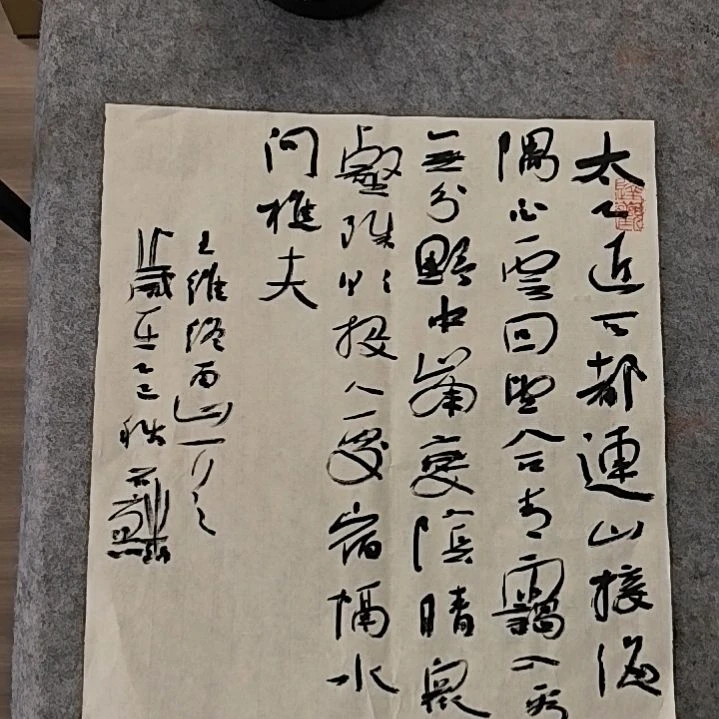 太乙近天都連山接海
隅白雲回望合青靄入看
無分野中峯變陰晴衆
壑殊欲投人處宿隔水
問樵夫
王維終南山一
歲在乙巳秋